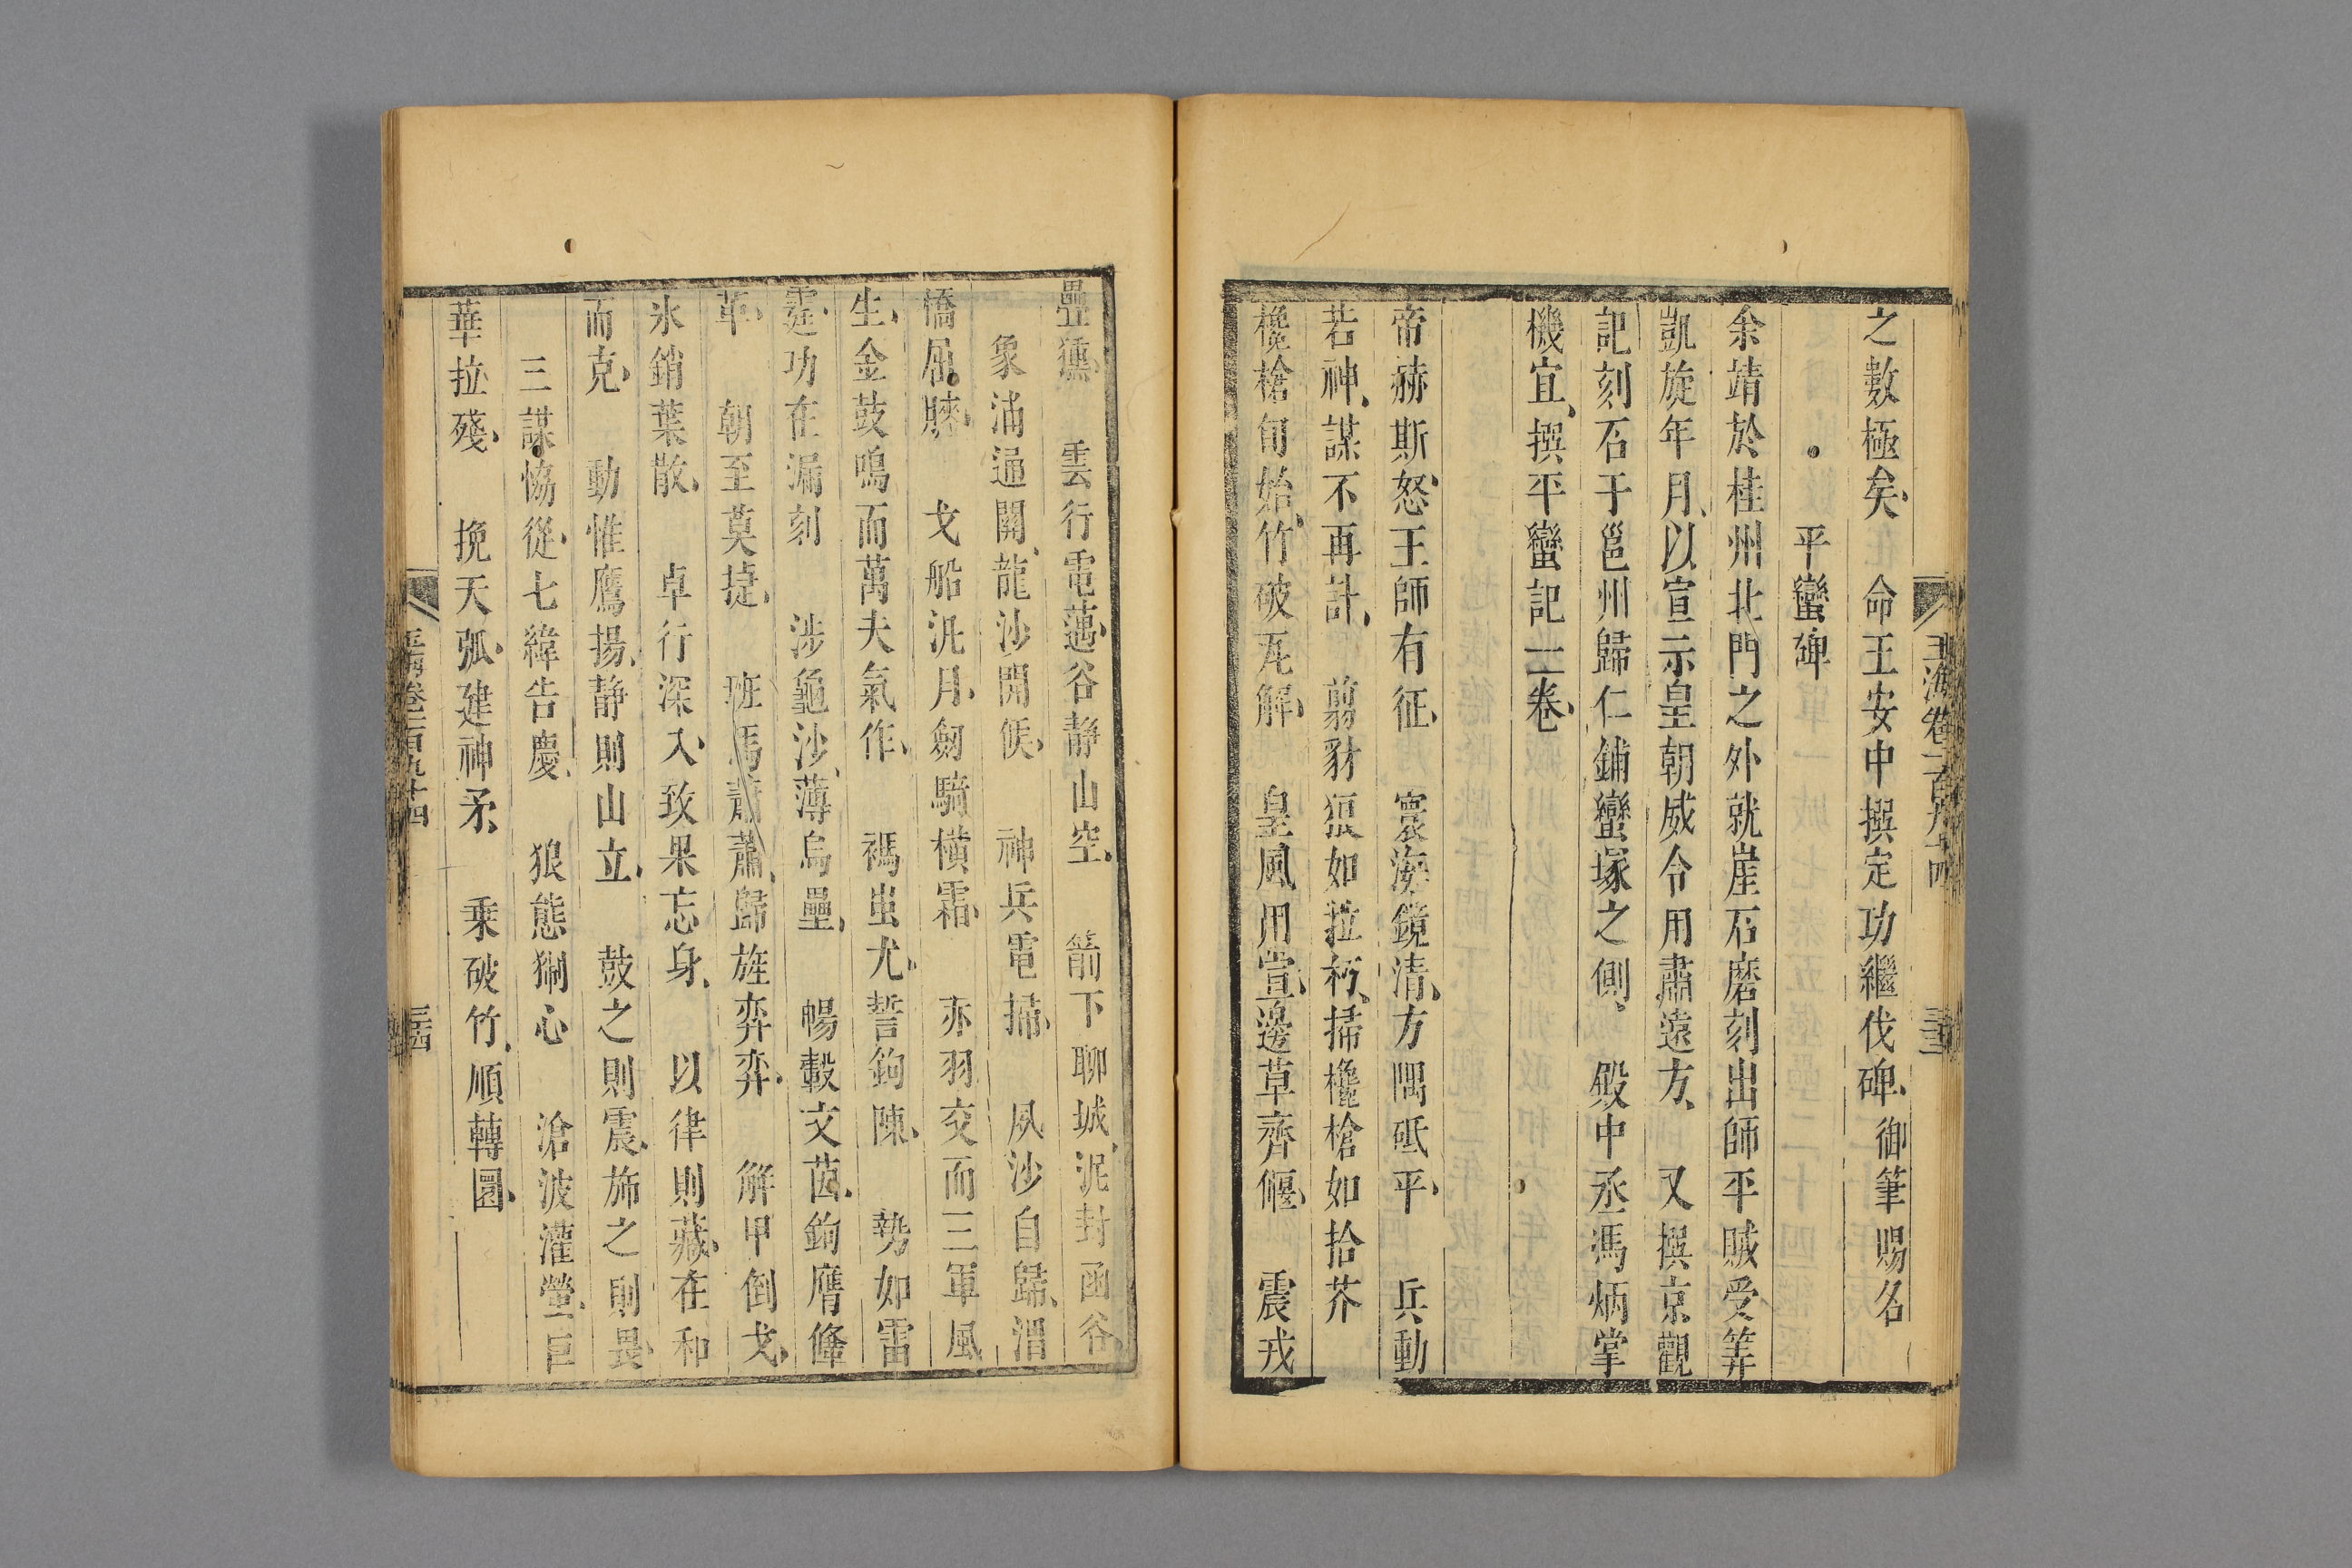 玉海卷一百九十四
三十三
之數極矣 命王安中撰定功繼伐碑御筆賜名
平蠻碑
余靖於桂州北門之外就崖石磨刻出師平賊受筭
凱旋年月以宣示皇朝威令用肅遠方 又撰京觀
記刻石于邕州歸仁鋪蠻塚之側 殿中丞馮炳掌
機宜撰平蠻記二卷
帝赫斯怒王師有征 寰海鏡清方隅砥平 兵動
若神謀不再計 翦豺狼如拉朽掃欃槍如拾芥
欃槍旬始竹破瓦解 皇風用宣邊草齊偃 震戎
疊獯 雲行電邁谷靜山空 箭下聊城泥封函谷
象浦逼關龍沙開候 神兵電掃 夙沙自歸渭
橋屈膝 戈船汎月劒騎橫霜 赤羽交而三軍風
生金鼓鳴而萬夫氣作 禡蚩尤誓鉤陳 勢如雷
霆功在漏刻 涉龜沙薄烏壘 暢轂文茵鉤膺鞗
革 朝至莫捷 班馬蕭蕭歸旌弈弈 解甲倒戈
氷銷葉散 卓行深入致果忘身 以律則藏在和
而克 動惟鷹揚静則山立 鼓之則震施之則畏
三謀恊從七緯告慶 狼態猘心 滄波灌螢巨
華拉殘 挽天弧建神矛 乘破竹順轉圓
玉海卷一百九十四
三十四